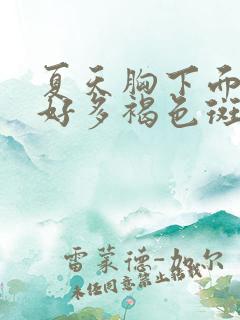 夏天胸下而
好多褐色斑
雷蒙德-加尔
未经同意禁止转载